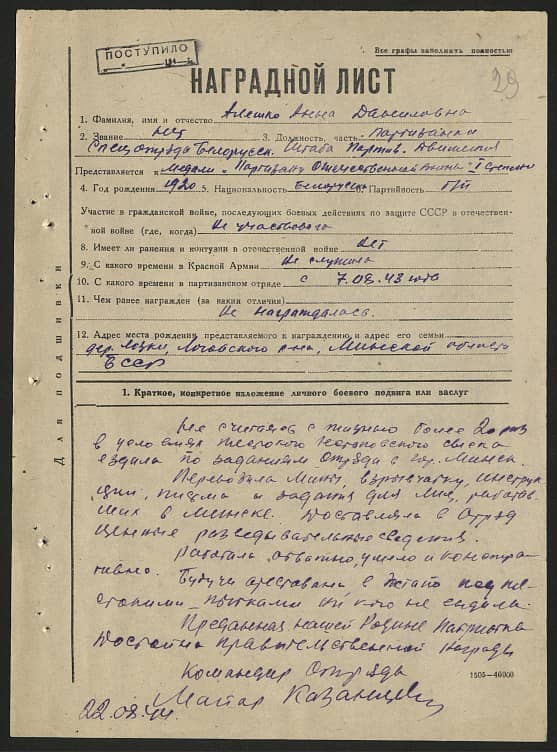 ПОСТУПИЛО
Все графы заполнять полностью
29
НАГРАДНОЙ ЛИСТ
1. Фамилия, имя и отчество Алешко Анна Даниловна
2. Звание нет 3. Должность, часть Партизанка
Спецотряда Белорусск. Штаба Партиз. Движения
Представляется к медали „Партизану Отечественной войны" I степени
4. Год рождения 1920 5. Национальность Белоруска 6. Партийность б/п
Участие в гражданской войне, последующих боевых действиях по защите СССР и отечествен-
ной войне (где, когда) Не участвовала
8. Имеет ли ранения и контузии в отечественной войне нет
9. С какого времени в Красной Армии Не служила
10. С какого времени в партизанском отряде с 7.08.43 года
11. Чем ранее награжден (за какия отличия)
Не награждалась.
12. Адрес места рождения представляемого к награждению и адрес его семьи
дер. Логовского р-на, Минской области
БССР
Для подшивки
1. Краткое, конкретное изложение личного боевого подвига или заслуг
Не считаясь с жизнью более 20 раз
в условиях жестокого сыска
ездила по заданиям Отряда в гор. Минск.
Перевозила Мины, взрывчатку, инструк
ции, письма и задания для лиц, работав
ших в Минске. Доставляла в Отряд
ценные разведывательные сведения.
Работала отважно, умело и
Будучи арестована в под
пытками ни кого не выдала.
Преданная нашей Родине Патриотка
Достойна правительственной награды
Командир Отряда
Майор Казанцев
1505—40000
22.08.44.